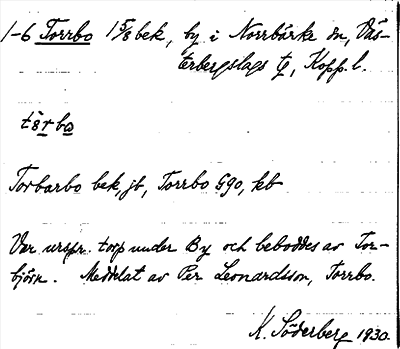 1-6 Torrbo 1 5/8 bek, by i Norrbärke sn, Väs-
terbergslags tg, Kopp. l.
Torbarbo bek, jb, Torrbo G90, kb
Var urspr. torp under By och beboddes av Tor-
björn. Meddelat av Per Leonardsson, Torrbo.
K. Söderberg 1930.